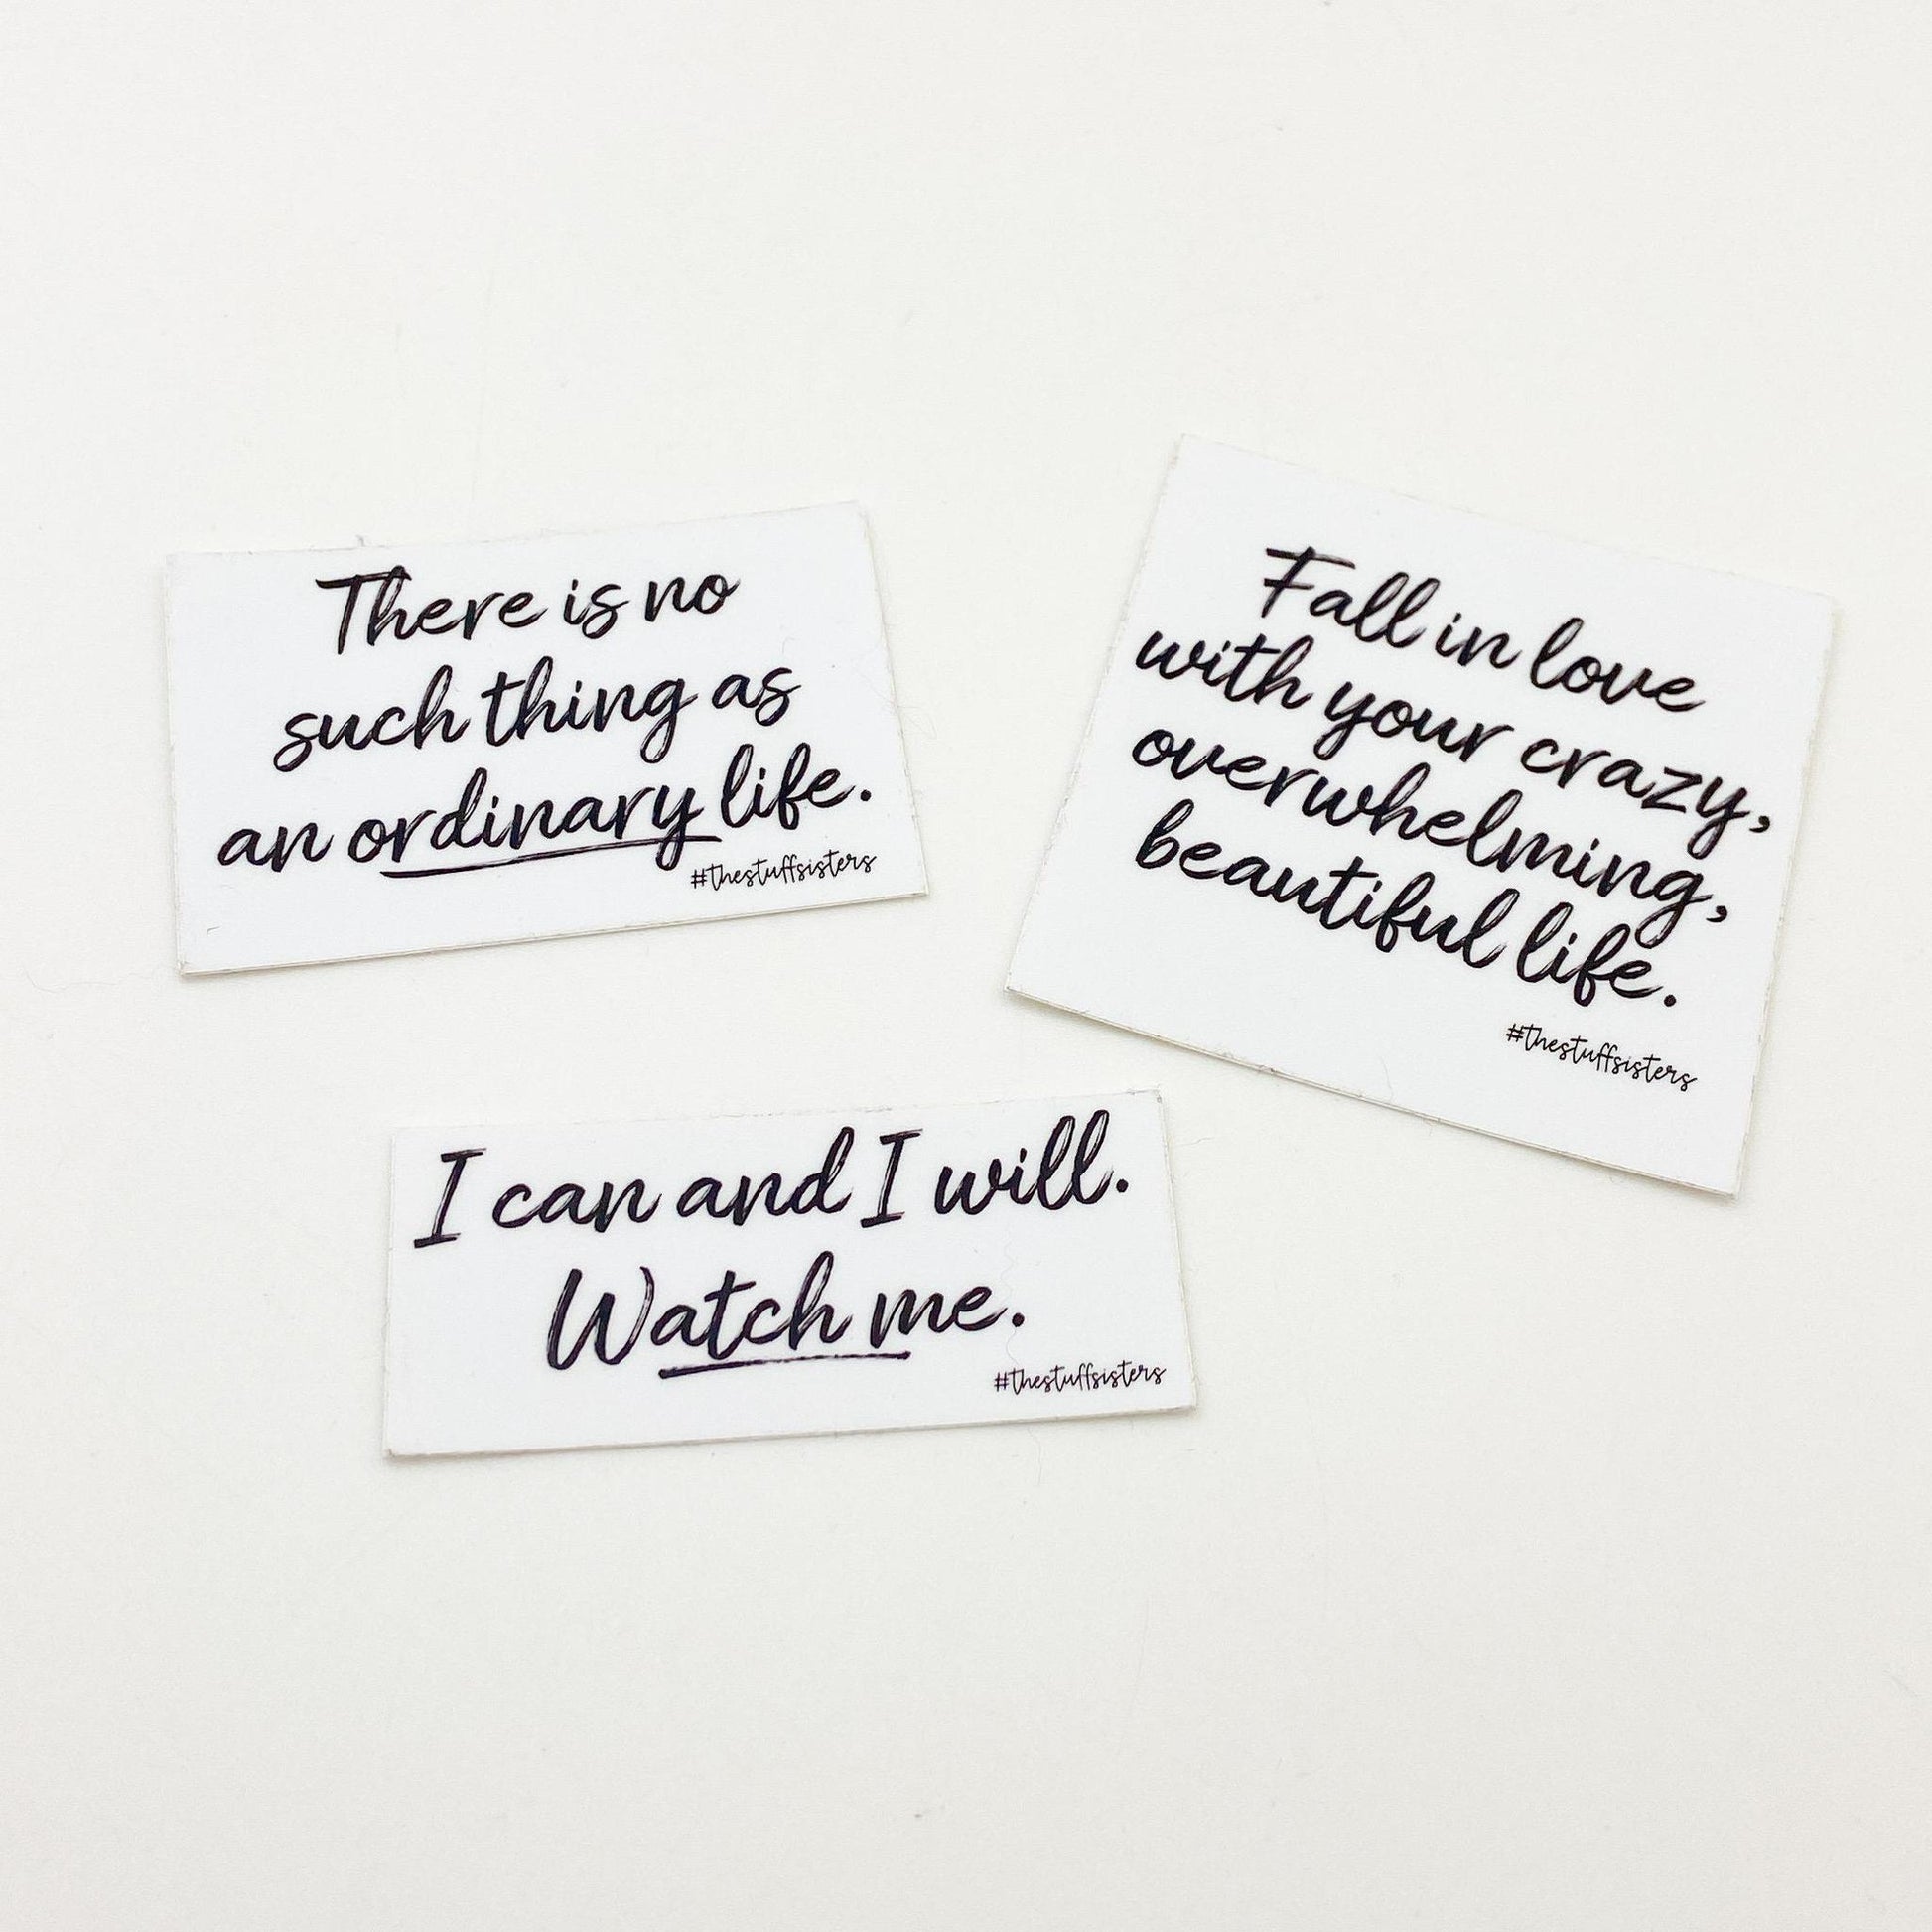 There is no
such thing as
an ordinary life.
#thestuffsisters
Fall in love
with your crazy,
overwhelming,
beautiful life.
#thestuffsisters
I can and I will.
Watch me.
#thestuffsisters